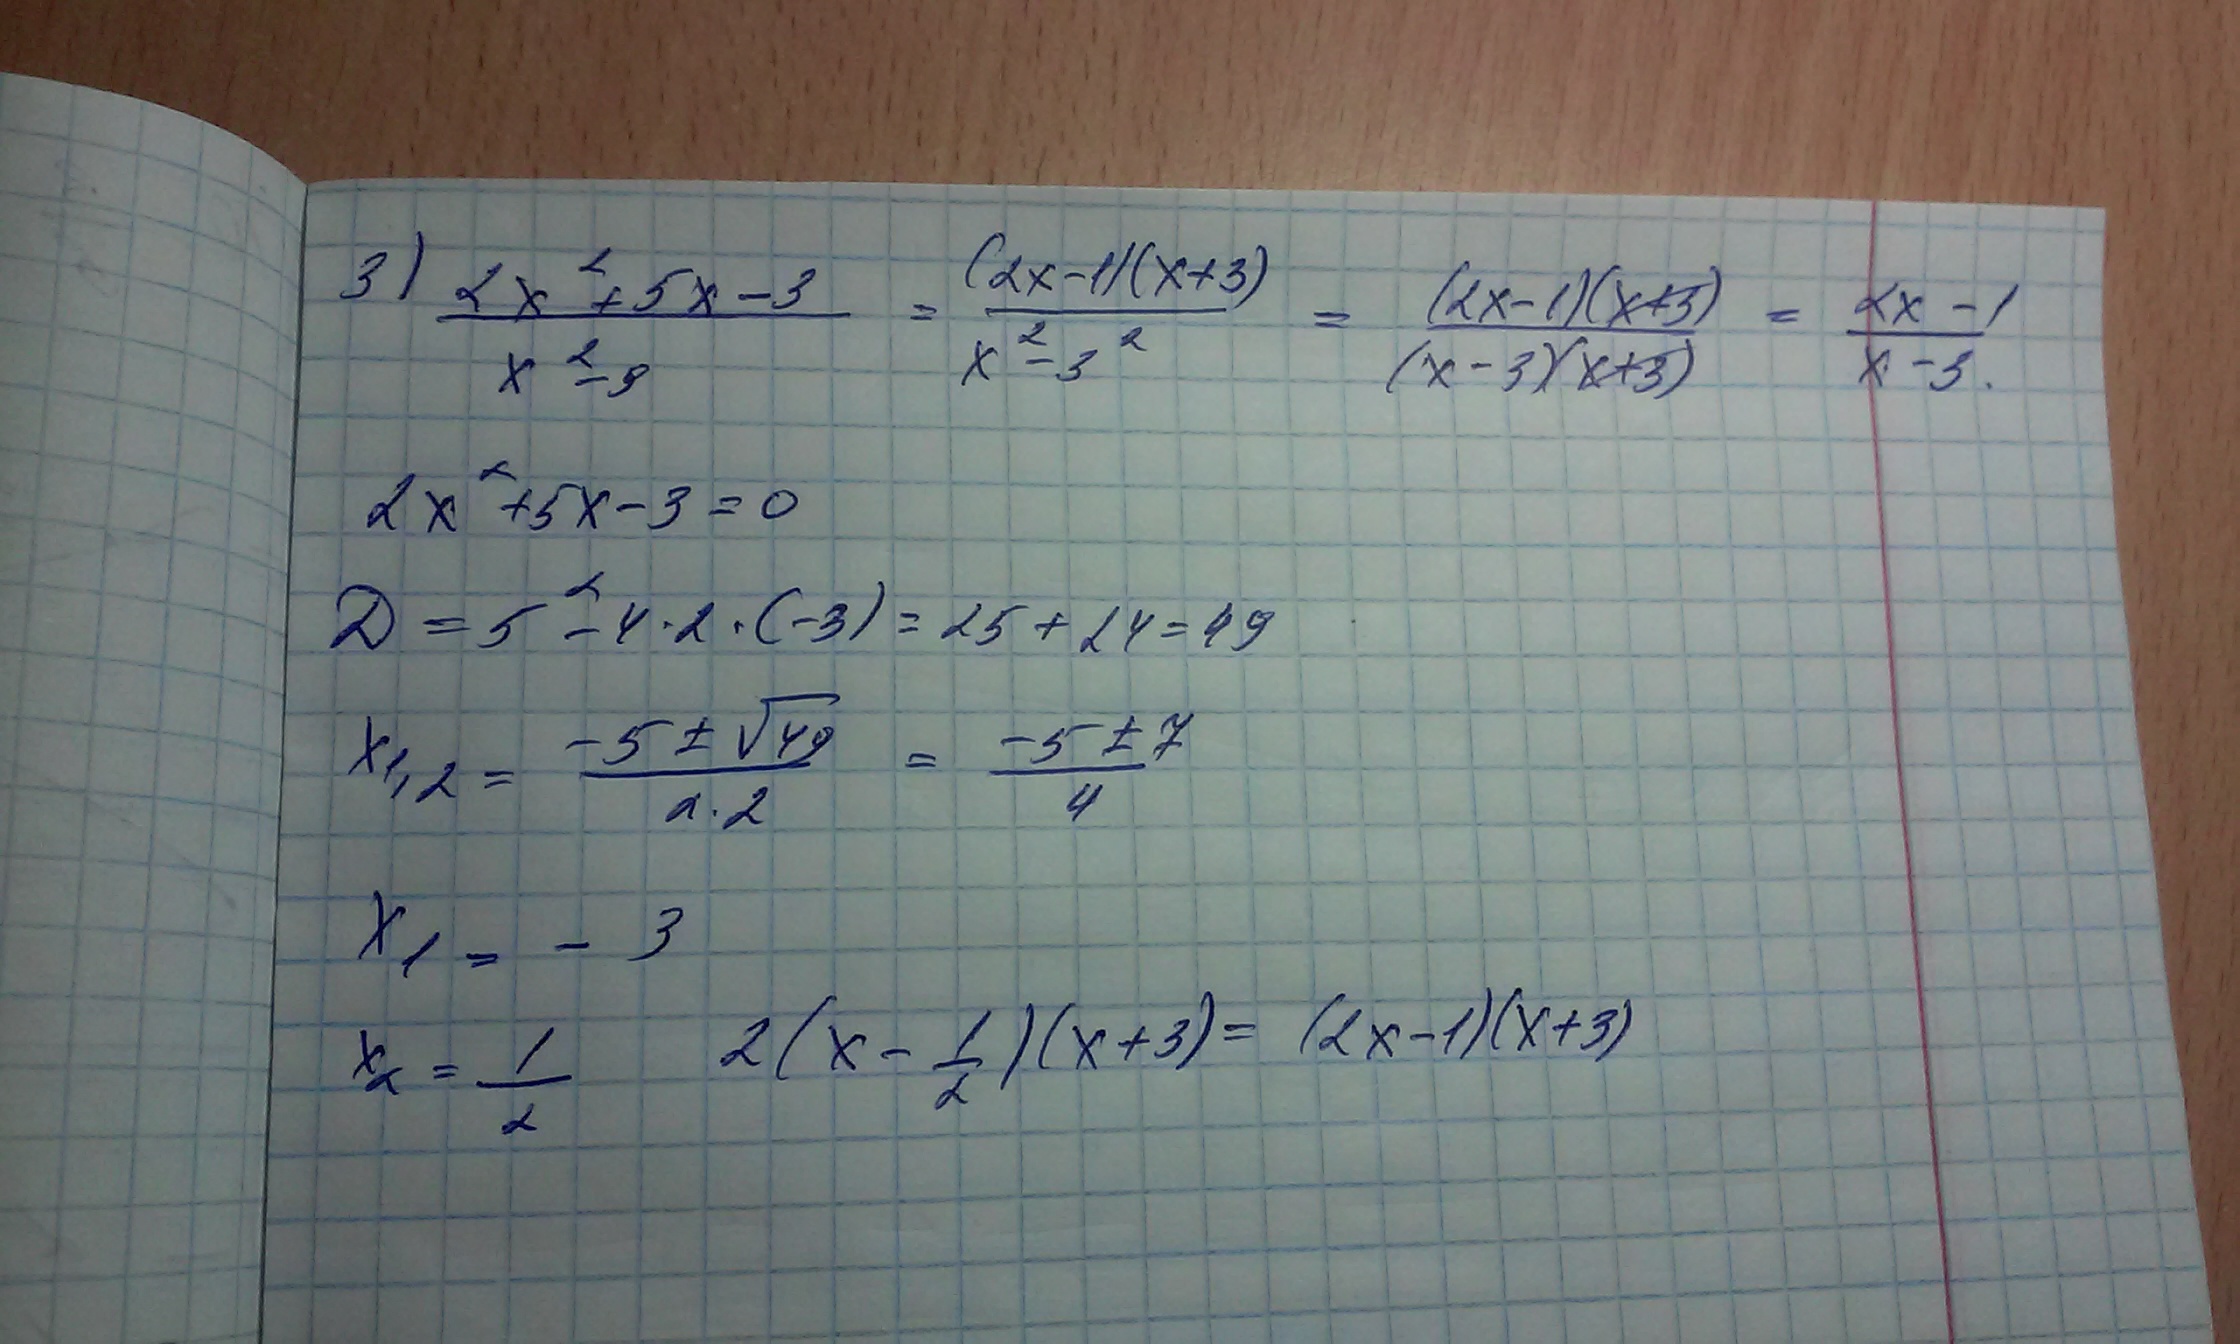 3) (2x²+5x-3)/(x²-9) = ((2x-1)(x+3))/(x²-3²) = ((2x-1)(x+3))/((x-3)(x+3)) = (2x-1)/(x-3).
2x²+5x-3=0
D=5²-4·2·(-3)=25+24=49
x₁,₂ = (-5±√49)/(2·2) = (-5±7)/4
x₁ = -3
x₂ = 1/2 2(x-1/2)(x+3)= (2x-1)(x+3)